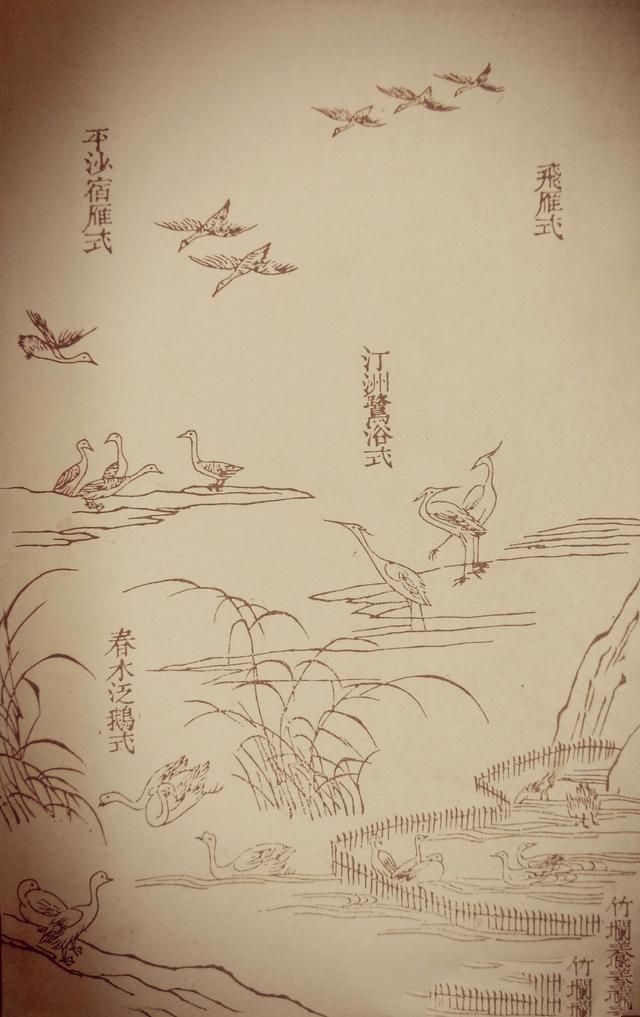 飛雁式
汀洲鷺浴式
平沙宿雁式
春水泛鵝式
竹欄
竹欄